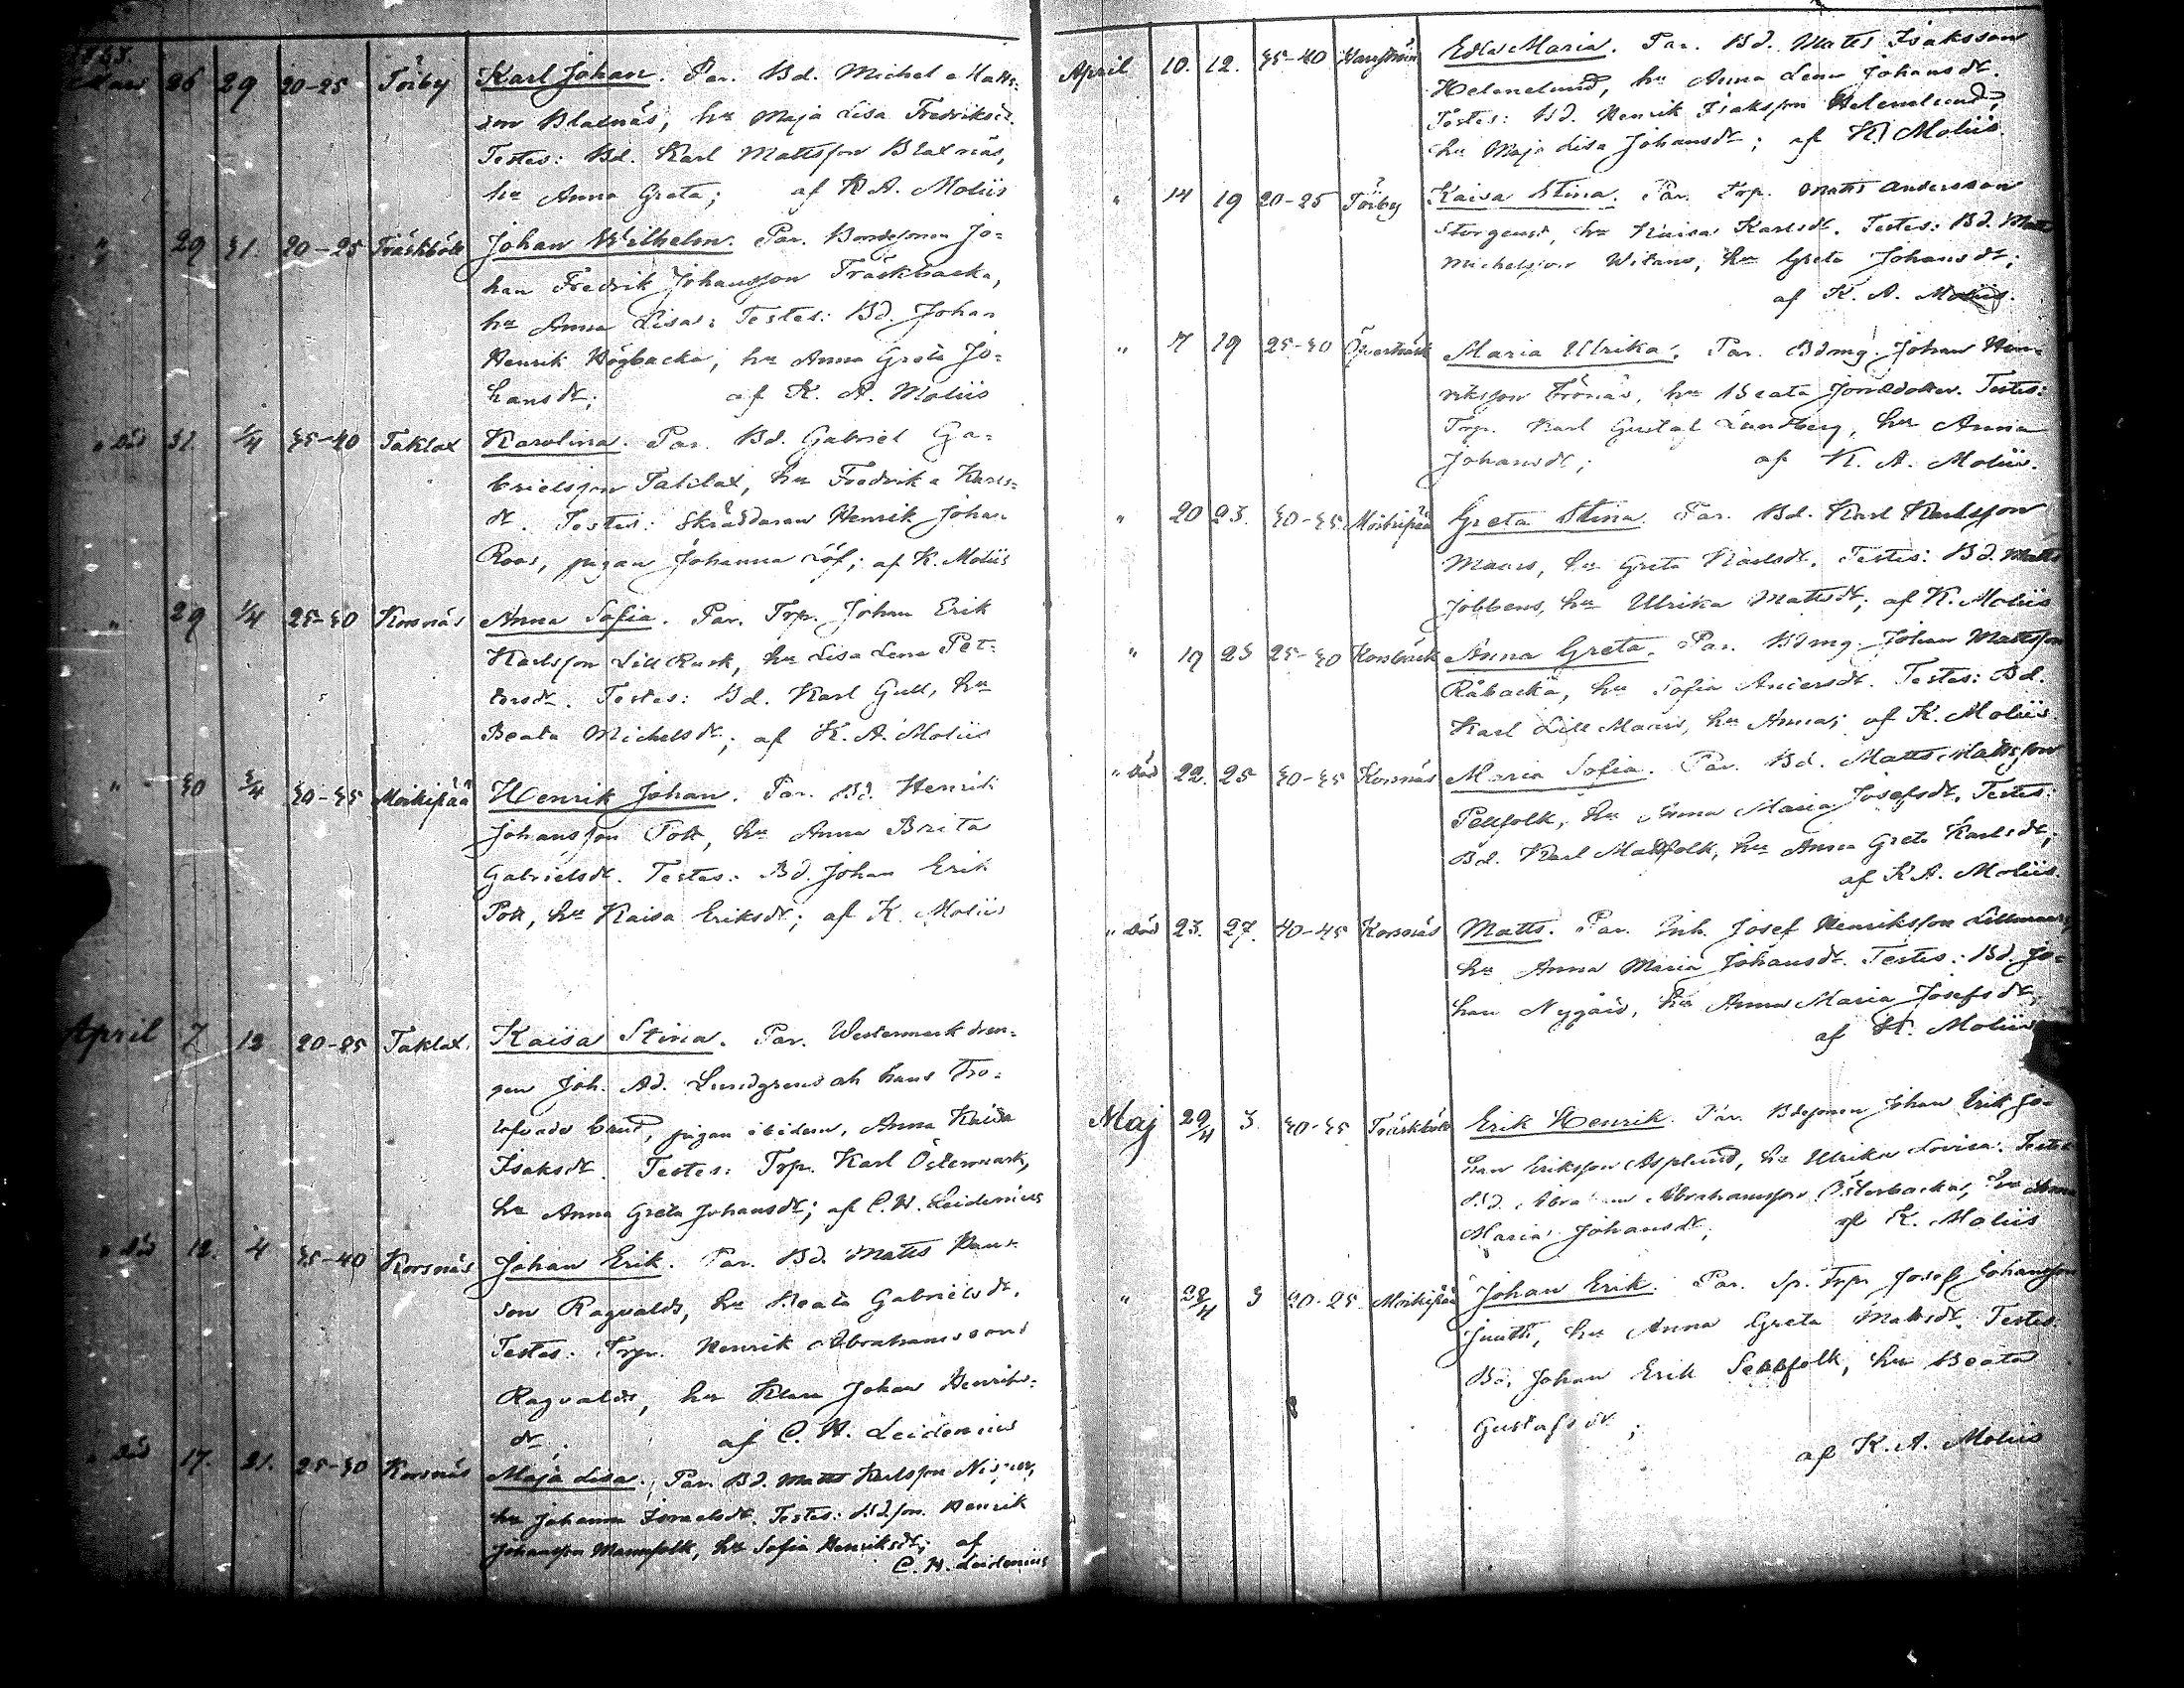 1863.
Mars 26 29 20-25 Töiby Karl Johan. Par. Bd. Michel Matts-
son Blaxnäs, hu Maja Lisa Fredriksd.
Testes: Bd. Karl Mattsson Blaxnäs,
hu Anna Greta; af K A. Moliis
" 29 31. 20-25 Träskböle Johan Wilhelm. Par. Bondesonen Jo-
han Fredrik Johansson Träskbacka,
hu Anna Lisa; Testes: Bd. Johan
Henrik Högbacka, hu Anna Greta Jo-
hansdr; af K. A. Moliis
" död 31. 1/4 35-40 Taklax Karolina. Par. Bd. Gabriel Ga-
brielsson Taklax, hu Fredrika Karls-
dr. Testes: Skräddaren Henrik Johan
Roos, pigan Johanna Löf; af K. Moliis
" 29 1/4 25-30 Korsnäs Anna Sofia. Par. Trp. Johan Erik
Karlsson Lill Rusk, hu Lisa Lena Pet-
tersdr. Testes: Bd. Karl Gull, hu
Beata Michelsdr; af K. A. Moliis
" 30 3/4 30-35 Moikipää Henrik Johan. Par. Bd. Henrik
Johansson Pott, hu Anna Brita
Gabrielsdr. Testes: Bd. Johan Erik
Pott, hu Kaisa Eriksdr; af K. Moliis
April 7 12 20-25 Taklax. Kaisa Stina. Par. Westermark dren-
gen Joh. Ad. Lundgren och hans Tro-
lofvade brud, pigan ibidem, Anna Kaisa
Isaksdr. Testes: Trp. Karl Östermark,
hu Anna Greta Johansdr; af C. H. Leidenius
" död 12. 4 35-40 Korsnäs Johan Erik. Par. Bd. Matts
son Ragvalds, hu Beata Gabrielsdr.
Testes: Trp. Henrik Abrahamsson
Ragvalds, hu Johan Henriks-
dr; af C. H. Leidenius
" död 17. 21. 25-30 Korsnäs Maja Lisa. Par. Bd. Matts Karlsson
hu Johanna Israelsdr. Testes: Bdson. Henrik
Johansson Mannfolk, hu Sofia Henriksdr; af
C. H. Leidenius
April 10. 12. 35-40 Edla Maria. Par. Bd. Matts Isaksson
Helenelund, hu Anna Lena Johansdr.
Testes: Bd. Henrik Isaksson Helenelund,
hu Maja Lisa Johansdr; af K. Moliis.
" 14 19 20-25 Töiby Kaisa Stina. Par. Trp. Matts Andersson
hu Kaisa Karlsdr. Testes: Bd. Matts
Michelsson Witans, hu Greta Johansdr;
af K. A. Moliis.
" 17 19 25-30 Öfverträsk Maria Ulrika. Par. Bdmg. Johan Hen-
riksson hu Beata Testes:
Trp. Karl Gustaf Lundberg, hu Anna
Johansdr; af K. A. Moliis.
" 20 23. 30-35 Moikipää Greta Stina. Par. Bd. Karl Karlsson
Maars, hu Greta Karlsdr. Testes: Bd. Matts
Jobbens, hu Ulrika Mattsdr; af K. Moliis
" 19 23 25-30 Korsbäck Anna Greta. Par. Bdmg. Johan Mattsson
Råbacka, hu Sofia Andersdr. Testes: Bd.
Karl Lill Maars, hu Anna; af K. Moliis
" död 22. 25 30-35 Korsnäs Maria Sofia. Par. Bd. Matts Mattsson
Pellfolk, hu Anna Maria Josefsdr. Testes:
Bd. Karl hu Anna Greta Karlsdr;
af K A. Moliis.
" död 23. 27. 40-45 Korsnäs Matts. Par. Inh. Josef Henriksson Lillmaars,
hu Anna Maria Johansdr. Testes: Bd. Jo-
han Nygård, hu Anna Maria Josefsdr;
af K. Moliis
Maj 29/4 3. 30-35 Träskböle Erik Henrik. Par. Bdesonen Johan Erik Jo-
han Eriksson Asplund, hu Ulrika Lovisa. Testes
Bd. Abraham Abrahamsson Österbacka, hu Anna
Maria Johansdr; af K. Moliis
" 28/4 3 20-25. Moikipää Johan Erik. Par. Sp. Trp. Josef Johansson
hu Anna Greta Mattsdr. Testes:
Bd. Johan Erik Seppfolk, hu Beata
Gustafsdr;
af K. A. Moliis